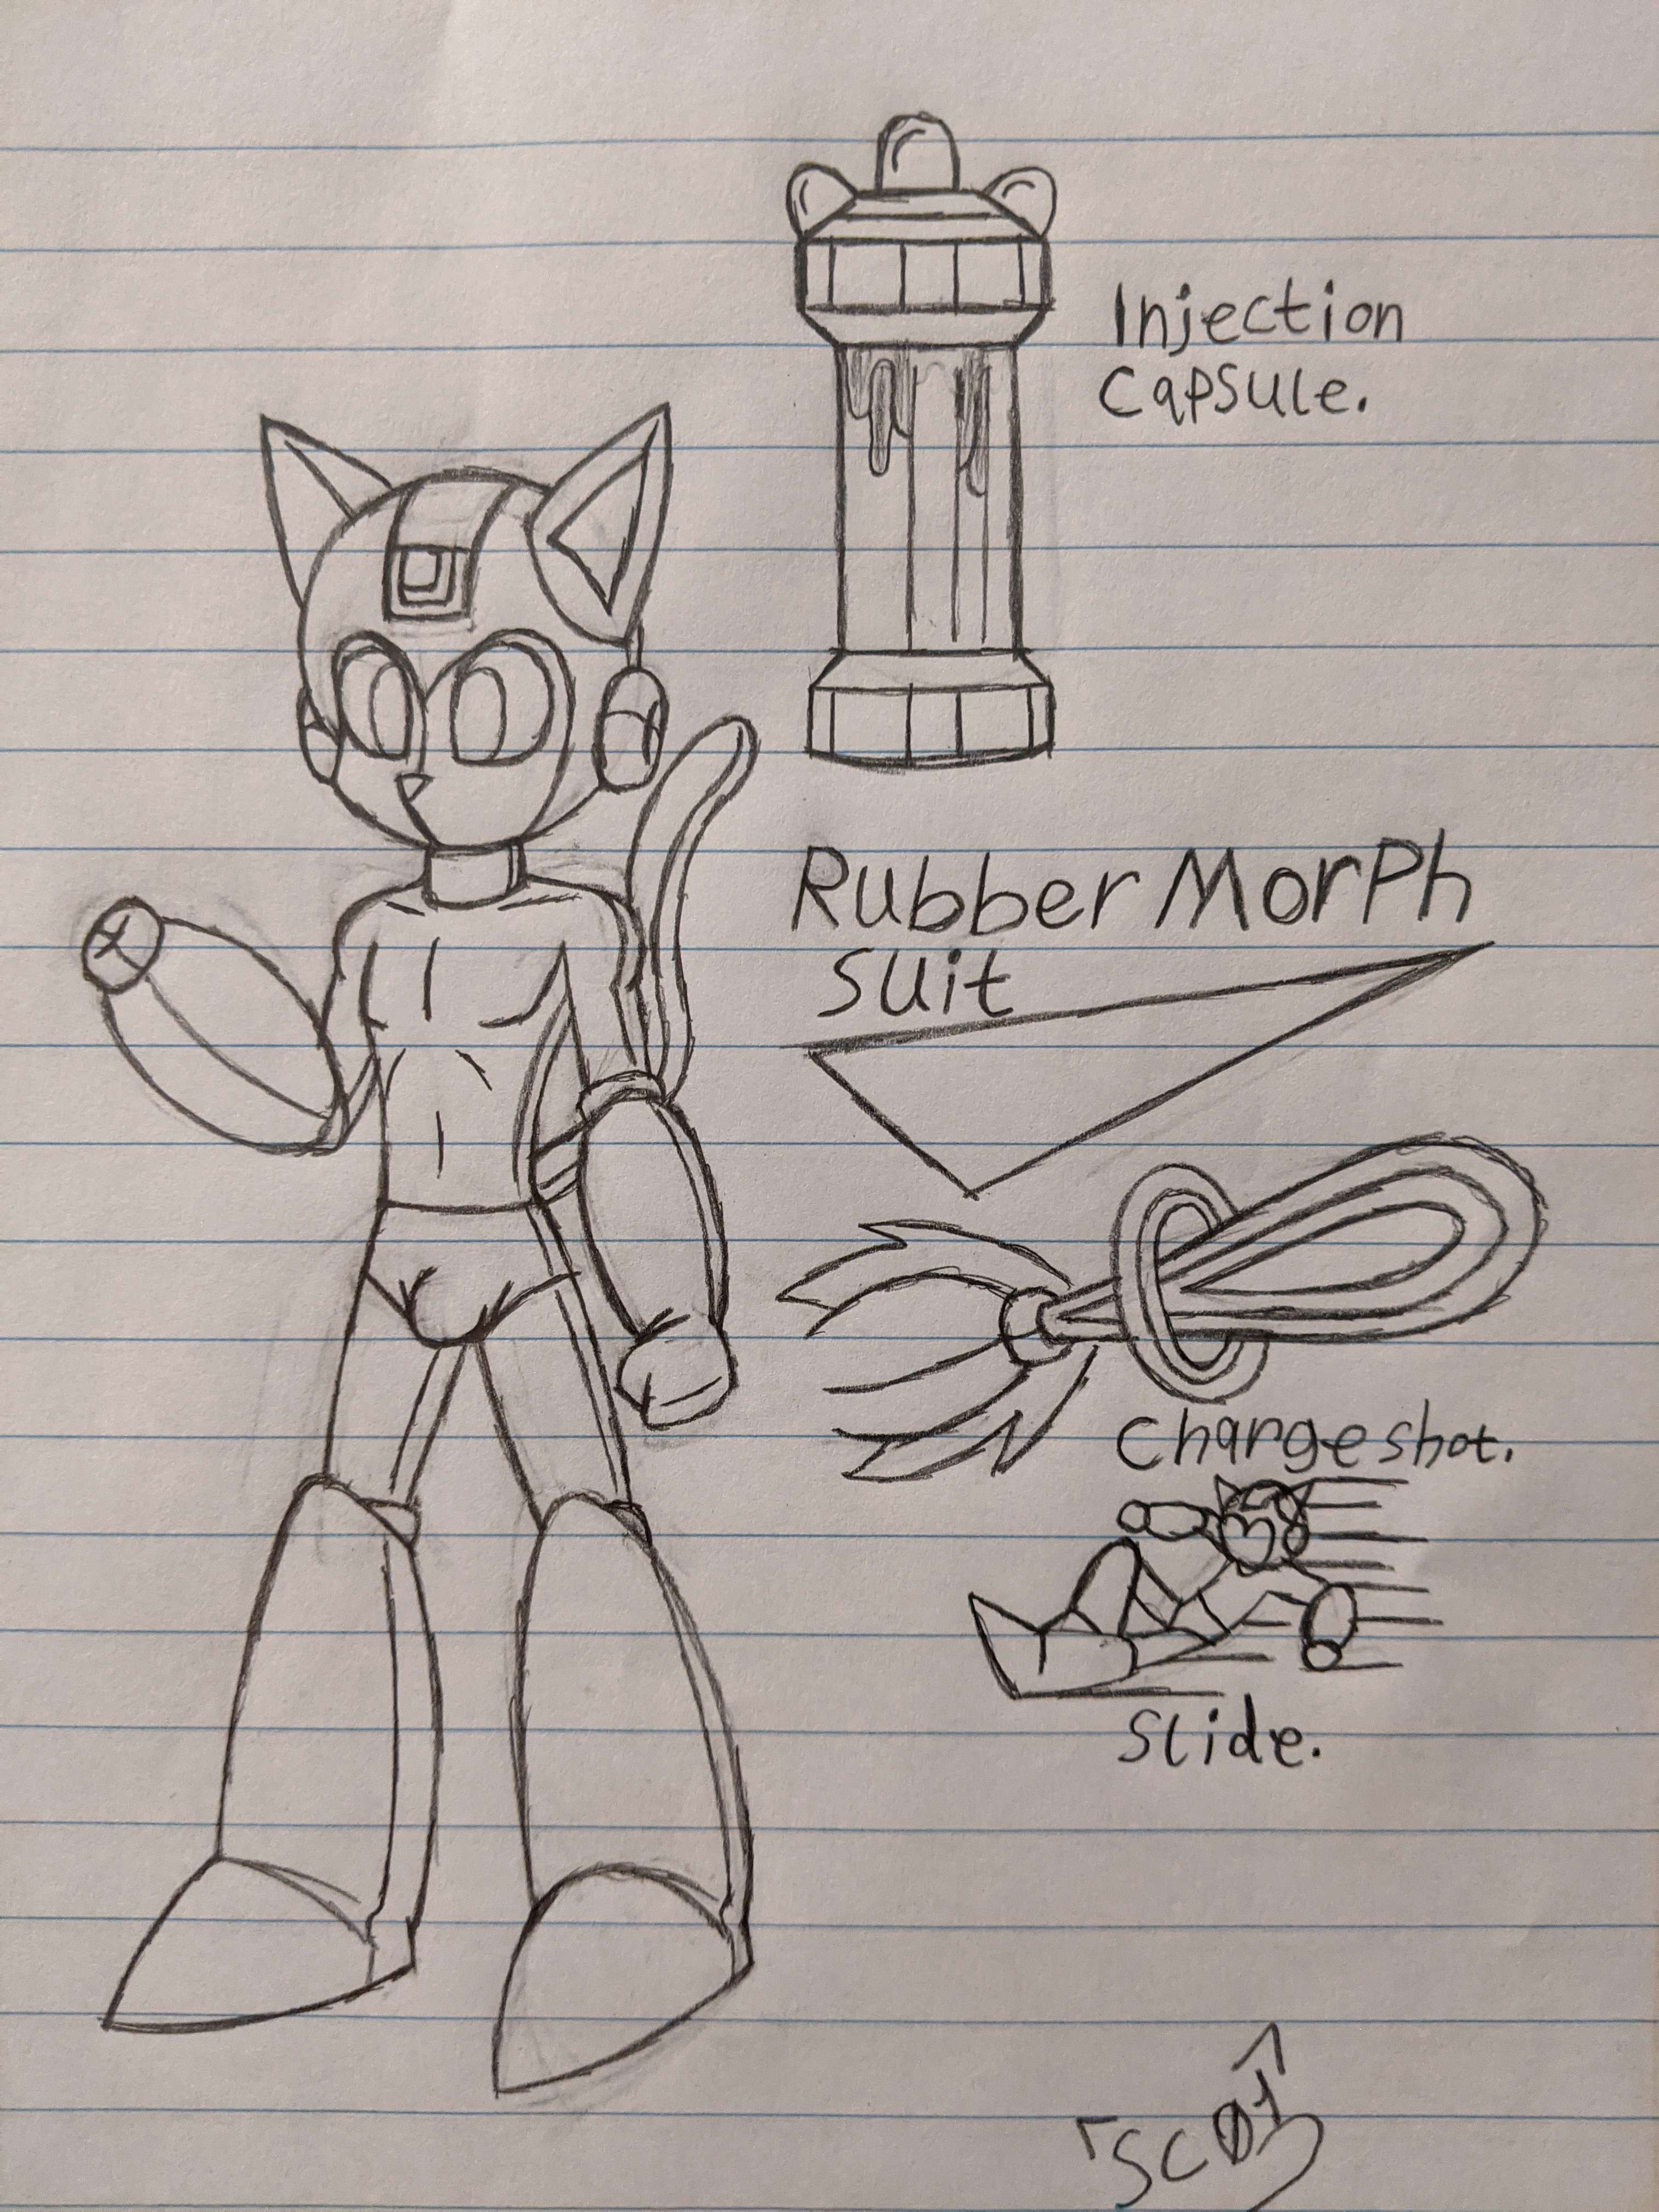 Injection
Capsule.
Rubber Morph
Suit
Charge shot.
Slide.